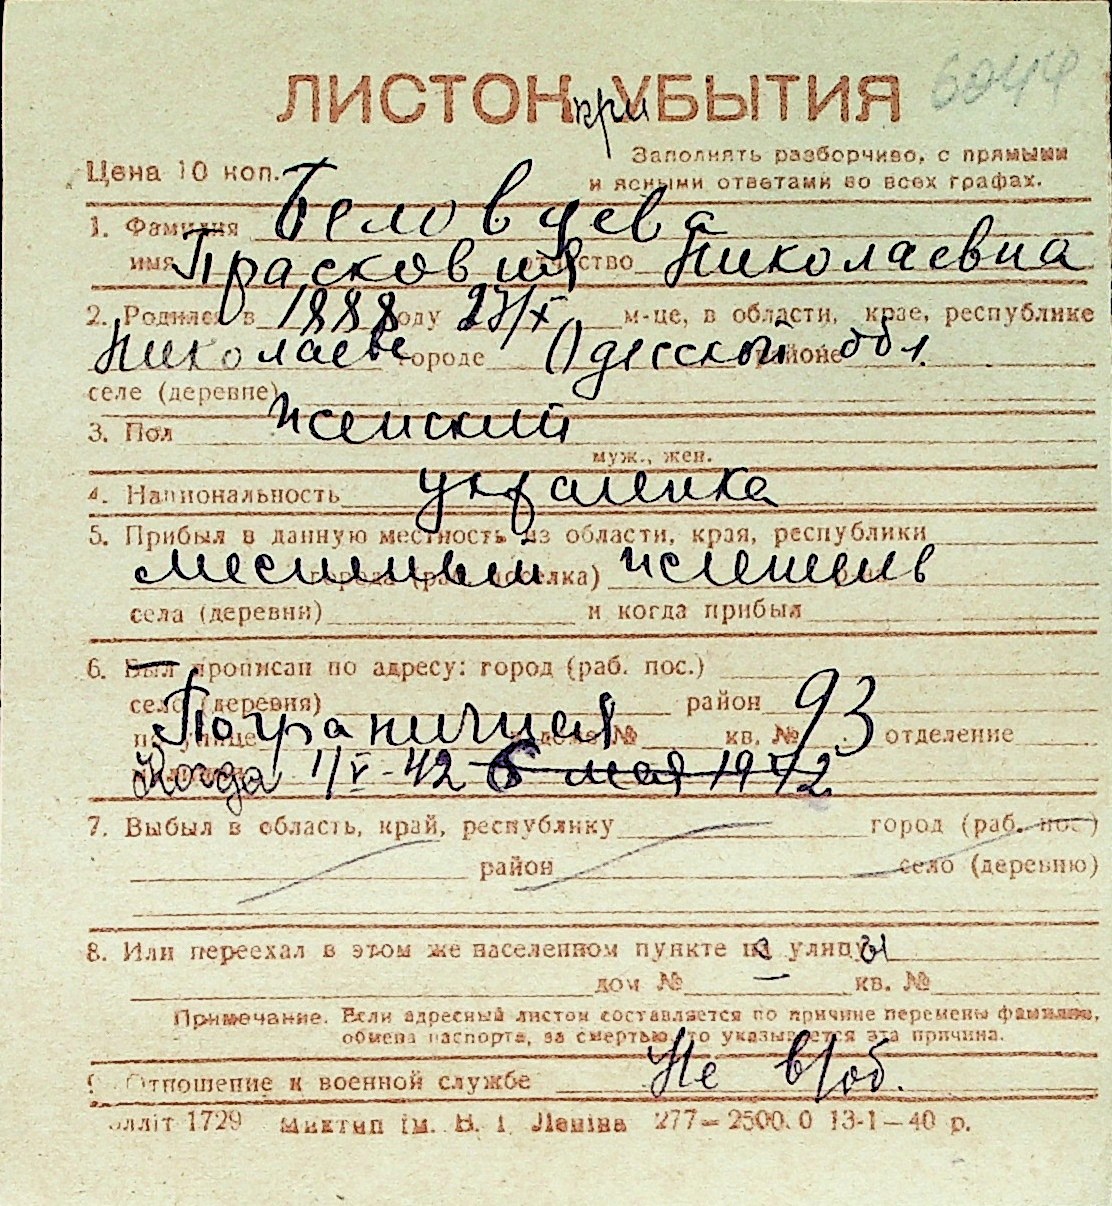 6044
ЛИСТОК при УБЫТИЯ
Заполнять разборчиво, с прямыми
Цена 10 коп.
и ясными ответами во всех графах.
1. Фамилия Беловцева
имя Прасковия отчество Николаевна
2. Родился в 1888 году 27/X м-це, в области, крае, республике
Николаеве городе Одесской районе обл.
селе (деревне)
3. Пол женский
муж., жен.
4. Национальность украинка
5. Прибыл в данную местность из области, края, республики
местный города (раб. поселка) житель
села (деревни) и когда прибыл
6. Был прописан по адресу: город (раб. пос.)
село (деревня) район
по улице Пограничная дома № кв. № 93 отделение
Когда 1/V-42 6 мая 1942
7. Выбыл в область, край, республику город (раб. пос.)
район село (деревню)
8. Или переехал в этом же населенном пункте с улицы
дом № кв. №
Примечание. Если адресный листок составляется по причине перемены фамилии,
обмена паспорта, за смертью, то указывается эта причина.
9. Отношение к военной службе Не в/об.
олліт 1729 Миктип ім. В. І. Леніна 277—2500.0 13-1—40 р.